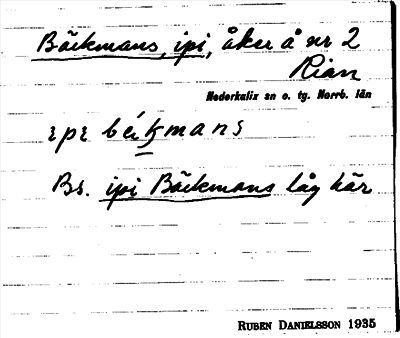 Bäckmans, ipi, åker å nr 2
Rian
Nederkalix sn o. tg. Norrb. län
ɩpɩ béꞣmans
Bs. ipi Bäckmans låg här
RUBEN DANIELSSON 1935